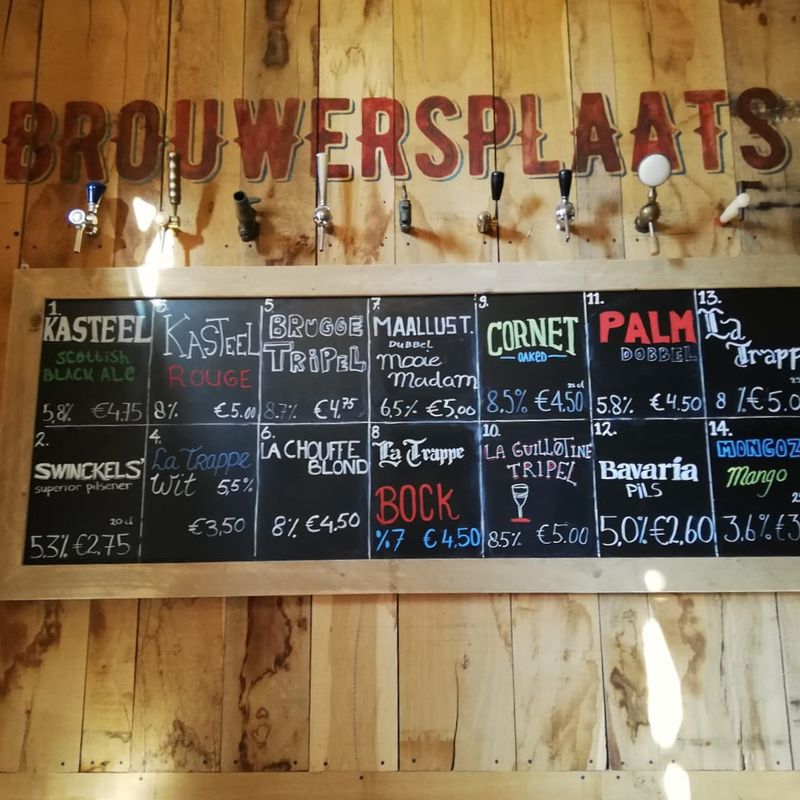 BROUWERSPLAATS
1.
KASTEEL
SCOTTISH
BLACK ALE
5,8% €4,75
KASTEEL
ROUGE
8% €5.00
5.
BRUGGE
TRIPEL
8.7% €4,75
7.
MAALLUST.
DUBBEL
Mooie
Madam
6,5% €5,00
9.
CORNET
OAKED
25 cl
8.5% €4.50
11.
PALM
DOBBEL
5.8% €4.50
13.
La
Trappe
8%
2.
SWINCKELS'
superior pilsener
20 cl
5.3% €2.75
4.
La Trappe
Wit 5,5%
€3,50
6.
LA CHOUFFE
BLOND
8% €4.50
8
La Trappe
BOCK
%7 €4.50
10.
LA GUILLOTINE
TRIPEL
8.5% €5.00
12.
Bavaria
PILS
5,0% €2,60
14.
MONGOZ
Mango
3.6% €3